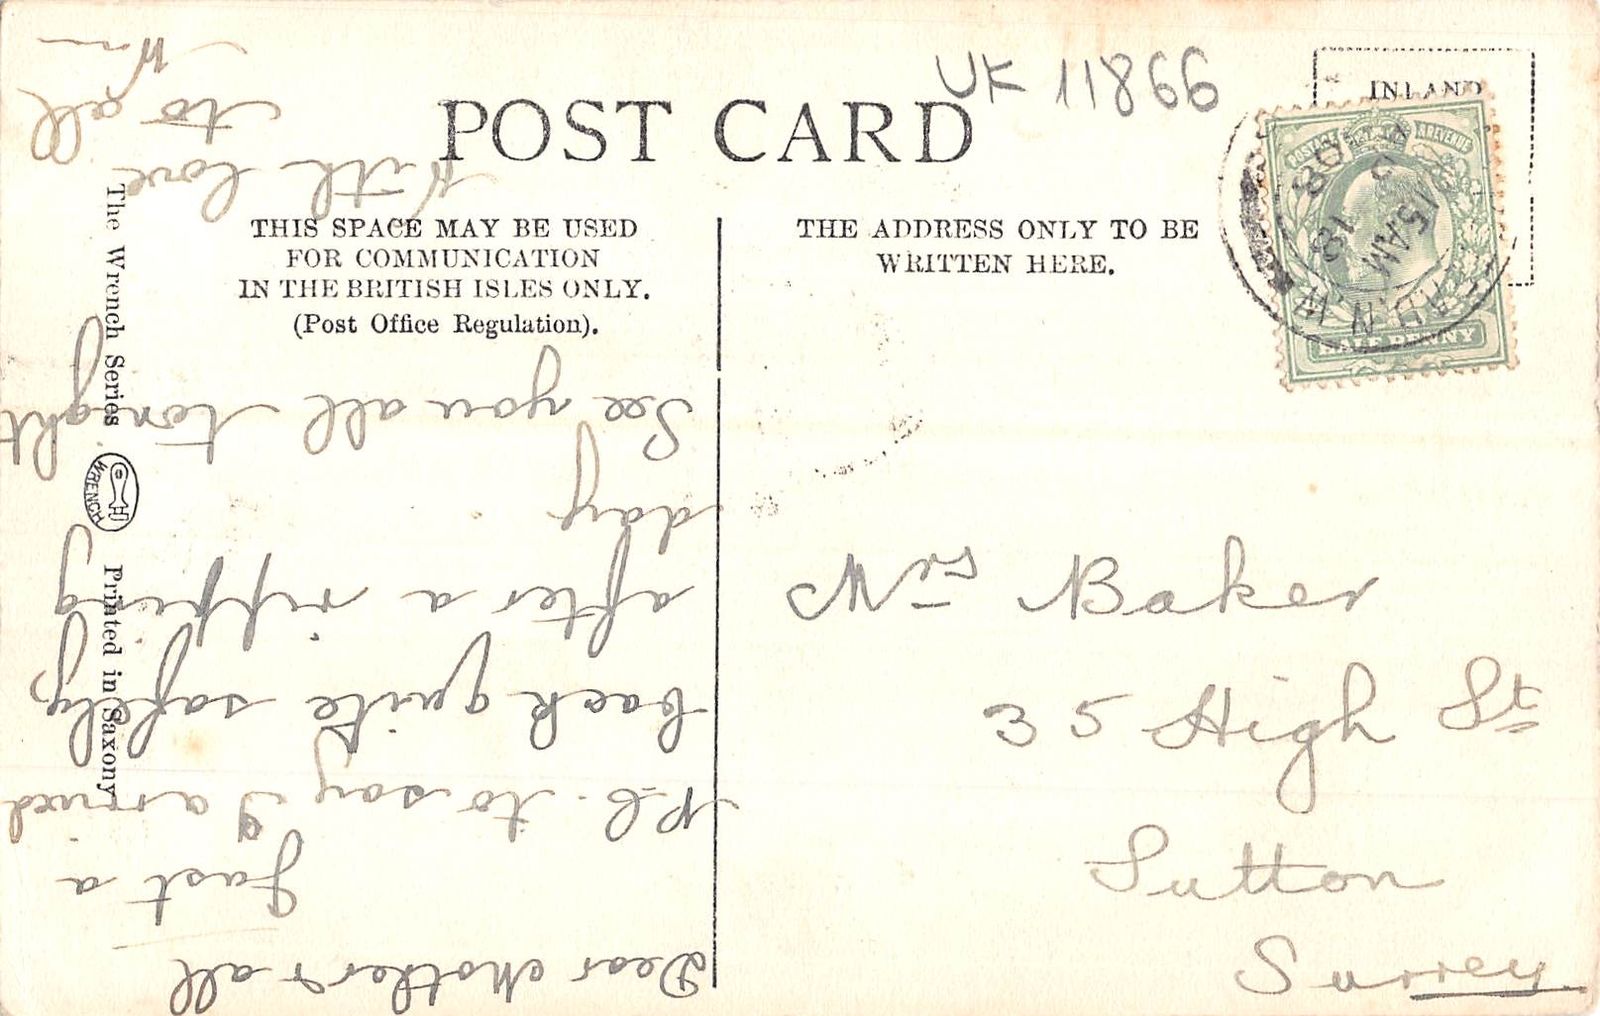 UK 11866
POST CARD
INLAND
THIS SPACE MAY BE USED
FOR COMMUNICATION
IN THE BRITISH ISLES ONLY.
(Post Office Regulation).
THE ADDRESS ONLY TO BE
WRITTEN HERE.
POSTAGE & REVENUE
HALF PENNY
15 AM
N.W
The Wrench Series
WRENCH
Printed in Saxony
Dear Mother & all
Just a
P.C. to say I arrived
back quite safely
after a ripping
day
See you all tonight
With love
to all
Mrs Baker
35 High St
Sutton
Surrey